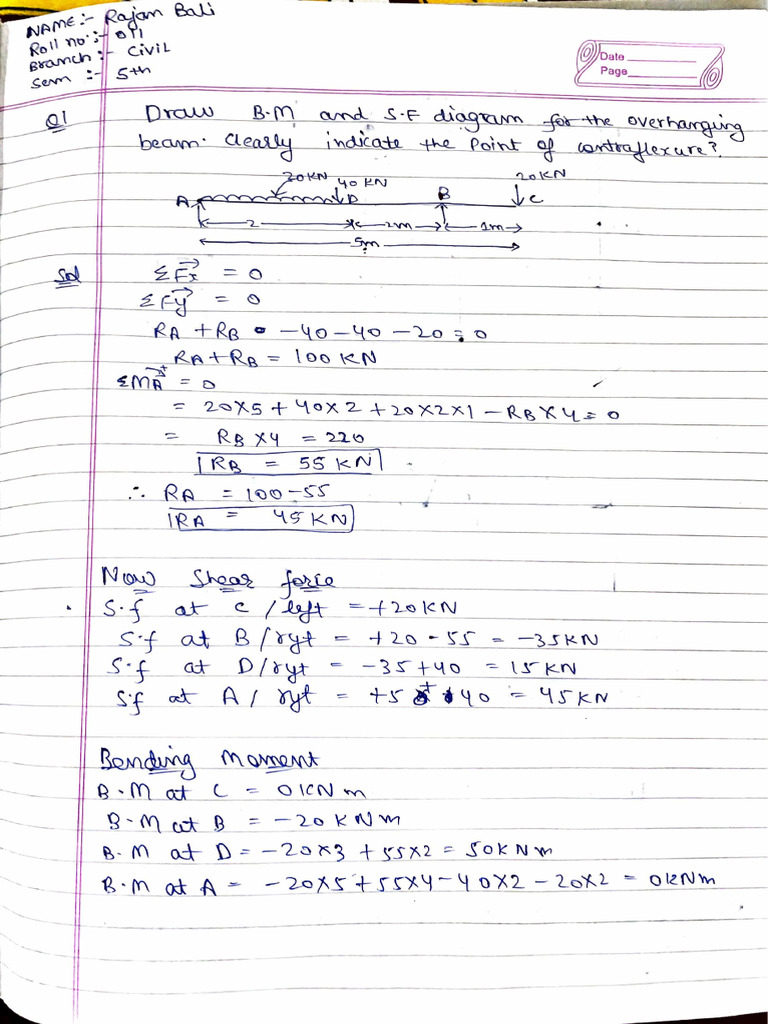 NAME:- Rajan Bali
Roll no:- 011
Branch:- Civil
Sem :- 5th
Date
Page
Q1 Draw B.M and S.F diagram for the overhanging
beam. Clearly indicate the Point of contraflexure?
20KN 40 KN B 20KN
A D C
2 2m 1m
5m
Sol ΣFx = 0
ΣFy = 0
RA + RB - 40 - 40 - 20 = 0
RA + RB = 100 KN
ΣMA = 0
= 20×5 + 40×2 + 20×2×1 - RB×4 = 0
= RB×4 = 220
RB = 55 KN
∴ RA = 100-55
RA = 45 KN
Now Shear force
S.f at C / left = +20KN
S.f at B/ryt = +20 - 55 = -35KN
S.f at D/ryt = -35+40 = 15KN
S.f at A/ ryt = +5 + 40 = 45KN
Bending Moment
B.M at C = 0KNm
B.M at B = -20KNm
B.M at D = -20×3 + 55×2 = 50KNm
B.M at A = -20×5 + 55×4 - 40×2 - 20×2 = 0KNm